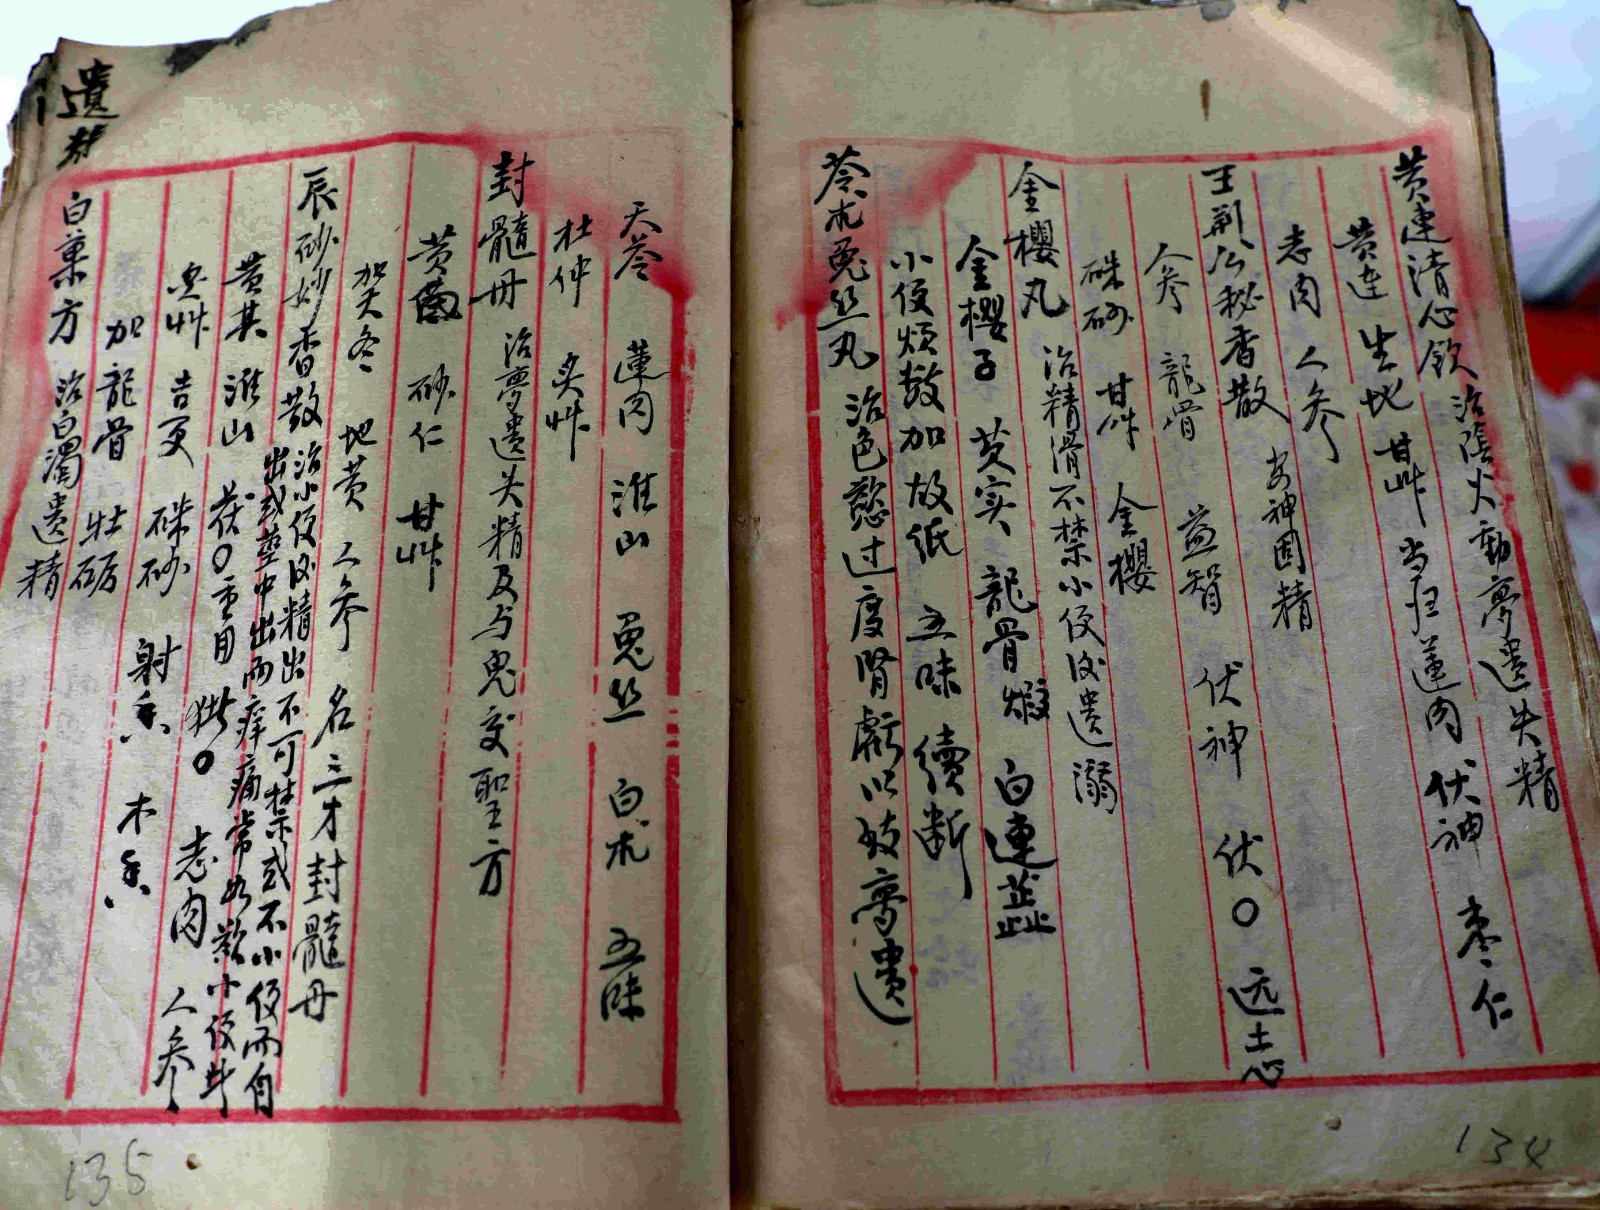 黄連清心飲 治陰火動夢遺失精
黄連 生地 甘艸 当归 蓮肉 伏神 枣仁
志肉 人参
王荆公秘香散 安神固精
人参 龍骨 益智 伏神 伏〇 远志
硃砂 甘艸 金櫻
金櫻丸 治精滑不禁小便後遗溺
金櫻子 芡实 龍骨煅 白連蕋
小便煩数加故纸 五味 續断
苓朮兎丝丸 治色慾过度腎虧以致夢遗
天苓 蓮肉 淮山 兎丝 白朮 五味
杜仲 炙艸
封髓丹 治夢遗失精及与鬼交聖方
黄 砂仁 甘艸
加天冬 地黄 人参 名三才封髓丹
辰砂妙香散 治小便後精出不可禁或不小便而自
出或莖中出而痒痛常如欲小便者
黄芪 淮山 茯〇 重用 〇 志肉 人参
艸 吉更 硃砂 射香 木香
加龍骨 牡砺
白菓方 治白濁遗精
遺精
134
135